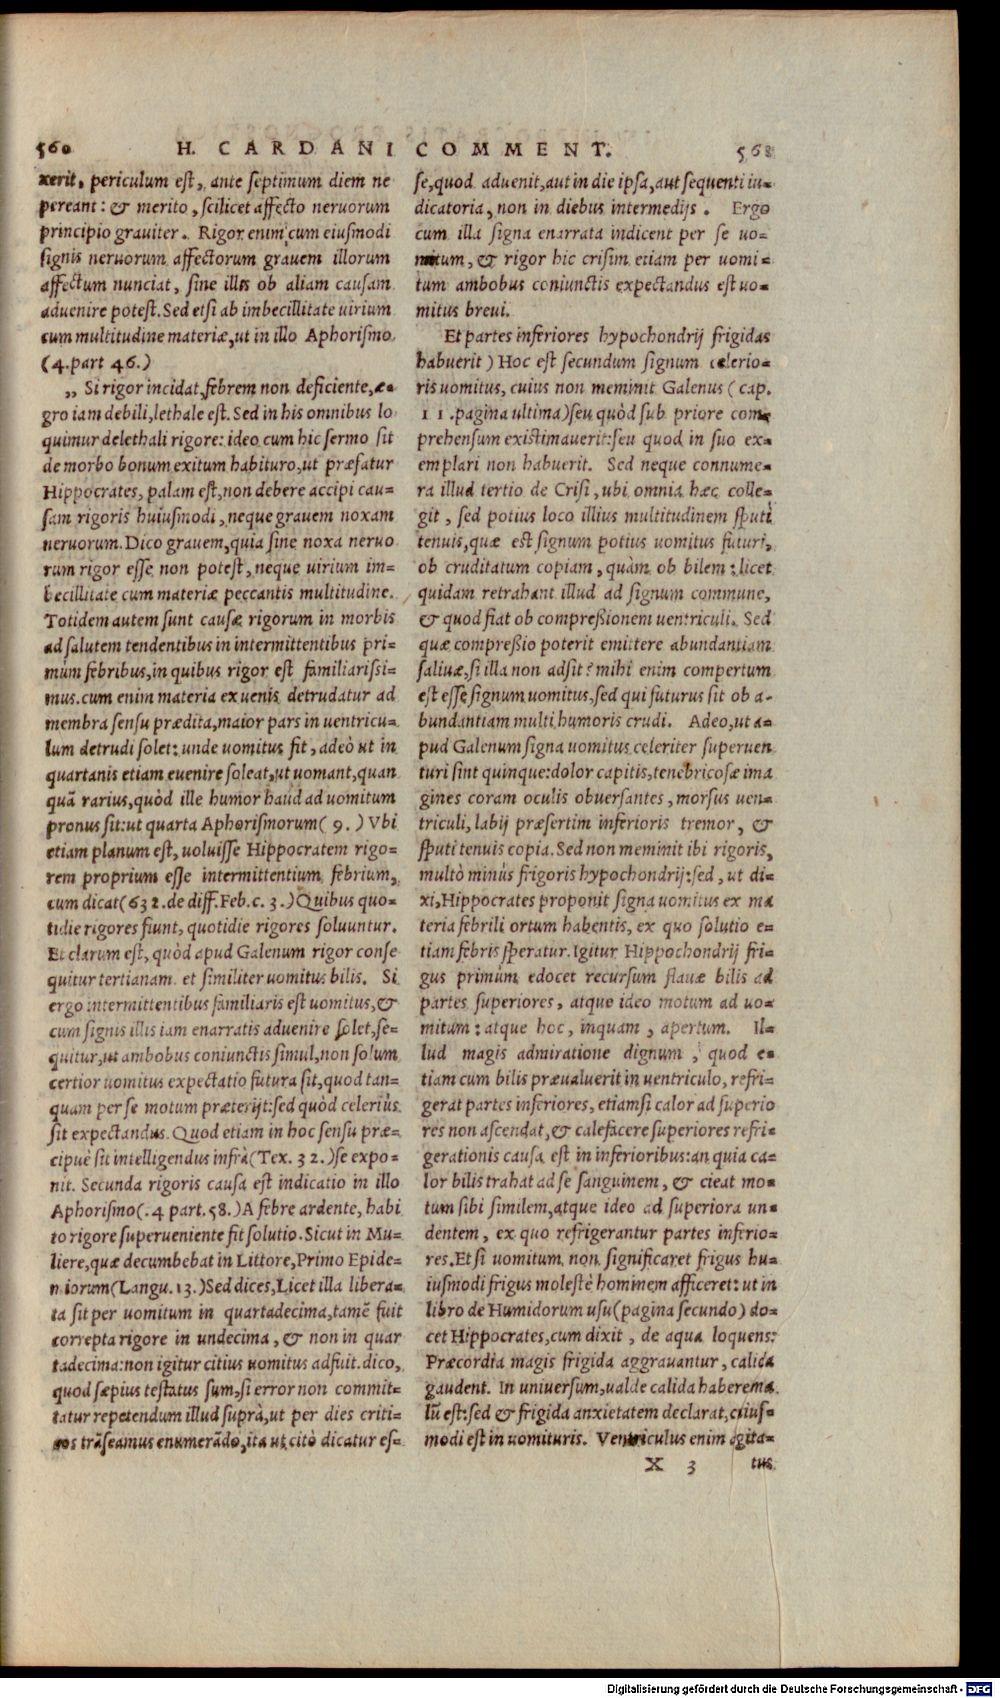 560 H. CARDANI COMMENT. 568
xerit, periculum est, ante septimum diem ne
pereant: & merito, scilicet affecto neruorum
principio grauiter. Rigor enim cum eiusmodi
signis neruorum affectorum grauem illorum
affectum nunciat, sine illis ob aliam causam
aduenire potest. Sed etsi ab imbecillitate uirium
cum multitudine materiæ, ut in illo Aphorismo
(4. part 46.)
„ Si rigor incidat, febrem non deficiente, æ-
gro iam debili, lethale est. Sed in his omnibus lo
quimur de lethali rigore: ideo cum hic sermo sit
de morbo bonum exitum habituro, ut præfatur
Hippocrates, palam est, non debere accipi cau=
sam rigoris huiusmodi, neque grauem noxam
neruorum. Dico grauem, quia sine noxa neruo
rum rigor esse non potest, neque uirium im=
becillitate cum materiæ peccantis multitudine.
Totidem autem sunt causæ rigorum in morbis
ad salutem tendentibus in intermittentibus pri=
mùm febribus, in quibus rigor est familiarissi=
mus. cum enim materia ex uenis detrudatur ad
membra sensu prædita, maior pars in uentricu=
lum detrudi solet: unde uomitus fit, adeò ut in
quartanis etiam euenire soleat, ut uomant, quan
quã rarius, quòd ille humor haud ad uomitum
pronus sit: ut quarta Aphorismorum (9.) Vbi
etiam planum est, uoluisse Hippocratem rigo=
rem proprium esse intermittentium febrium,
cum dicat (632. de diff. Feb. c. 3.) Quibus quo=
tidie rigores fiunt, quotidie rigores soluuntur.
Et clarum est, quòd apud Galenum rigor conse
quitur tertianam et similiter uomitus bilis. Si
ergo intermittentibus familiaris est uomitus, &
cum signis illis iam enarratis aduenire solet, se=
quitur, ut ambobus coniunctis simul, non solum
certior uomitus expectatio futura sit, quod tan=
quam per se motum præterijt: sed quòd celeriùs
sit expectandus. Quod etiam in hoc sensu præ=
cipuè sit intelligendus infrà (Tex. 32.) se expo=
nit. Secunda rigoris causa est indicatio in illo
Aphorismo (. 4 part. 58.) A febre ardente, habi
to rigore superueniente fit solutio. Sicut in Mu=
liere, quæ decumbebat in Littore, Primo Epide=
niorum (Langu. 13.) Sed dices, Licet illa libera=
ta sit per uomitum in quartadecima, tamẽ fuit
correpta rigore in undecima, & non in quar
tadecima: non igitur citius uomitus adfuit. dico,
quod sæpius testatus sum, si error non commit=
tatur repetendum illud suprà, ut per dies criti=
cos trãseamus enumerãdo, ita ut citò dicatur es=
se, quod aduenit, aut in die ipsa, aut sequenti iu=
dicatoria, non in diebus intermedijs. Ergo
cum illa signa enarrata indicent per se uo=
mitum, & rigor hic crisim etiam per uomi=
tum ambobus coniunctis expectandus est uo=
mitus breui.
Et partes inferiores hypochondrij frigidas
habuerit) Hoc est secundum signum celerio=
ris uomitus, cuius non meminit Galenus (cap.
11. pagina ultima) seu quòd sub priore com=
prehensum existimauerit: seu quod in suo ex=
emplari non habuerit. Sed neque connume=
ra illud tertio de Crisi, ubi omnia hæc colle=
git, sed potius loco illius multitudinem sputi
tenuis, quæ est signum potius uomitus futuri,
ob cruditatum copiam, quàm ob bilem: licet
quidam retrahant illud ad signum commune,
& quod fiat ob compreßionem uentriculi. Sed
quæ compreßio poterit emittere abundantiam
saliuæ, si illa non adsit? mihi enim compertum
est esse signum uomitus, sed qui futurus sit ob a-
bundantiam multi humoris crudi. Adeo, ut a=
pud Galenum signa uomitus celeriter superuen
turi sint quinque: dolor capitis, tenebricosæ ima
gines coram oculis obuersantes, morsus uen=
triculi, labij præsertim inferioris tremor, &
sputi tenuis copia. Sed non meminit ibi rigoris,
multò minùs frigoris hypochondrij: sed, ut di=
xi, Hippocrates proponit signa uomitus ex ma
teria febrili ortum habentis, ex quo solutio e=
tiam febris speratur. Igitur Hippochondrij fri=
gus primùm edocet recursum flauæ bilis ad
partes superiores, atque ideo motum ad uo=
mitum: atque hoc, inquam, apertum. Il=
lud magis admiratione dignum, quod e=
tiam cum bilis præualuerit in uentriculo, refri=
gerat partes inferiores, etiamsi calor ad superio
res non ascendat, & calefacere superiores refri=
gerationis causa est in inferioribus: an quia ca=
lor bilis trahat ad se sanguinem, & cieat mo=
tum sibi similem, atque ideo ad superiora un=
dentem, ex quo refrigerantur partes inferio=
res. Et si uomitum non significaret frigus hu=
iusmodi frigus molestè hominem afficeret: ut in
libro de Humidorum usu (pagina secundo) do=
cet Hippocrates, cum dixit, de aqua loquens:
Præcordia magis frigida aggrauantur, calida
gaudent. In uniuersum, ualde calida habere ma
lũ est: sed & frigida anxietatem declarat, cuius=
modi est in uomituris. Ventriculus enim agita=
X 3 tus
Digitalisierung gefördert durch die Deutsche Forschungsgemeinschaft - DFG